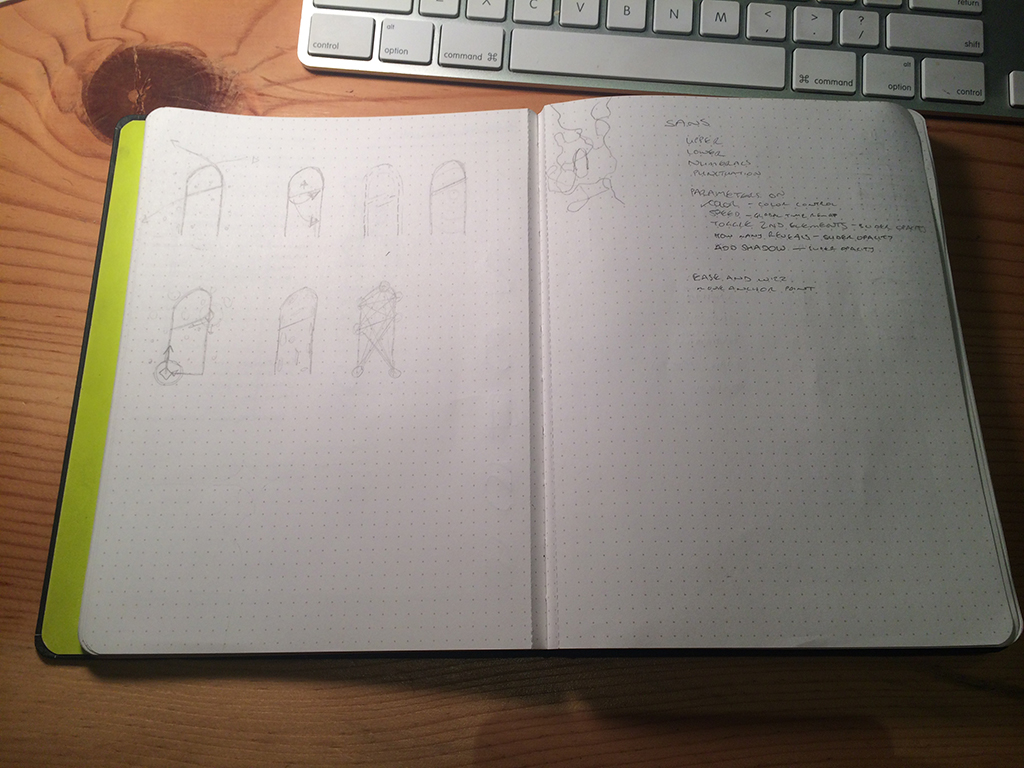 X C V B N M < , > . ? / return
control alt option command ⌘ ⌘ command alt option control shift
SANS
UPPER
LOWER
NUMERALS
PUNCTUATION
PARAMETERS ON
COLOR - COLOR CONTROL
SPEED - TIME
TOGGLE 2ND ELEMENTS - SLIDER OPACITY
HOW MANY REVEALS - SLIDER OPACITY
ADD SHADOW - SLIDER OPACITY
EASE AND WIZZ
ANCHOR POINT